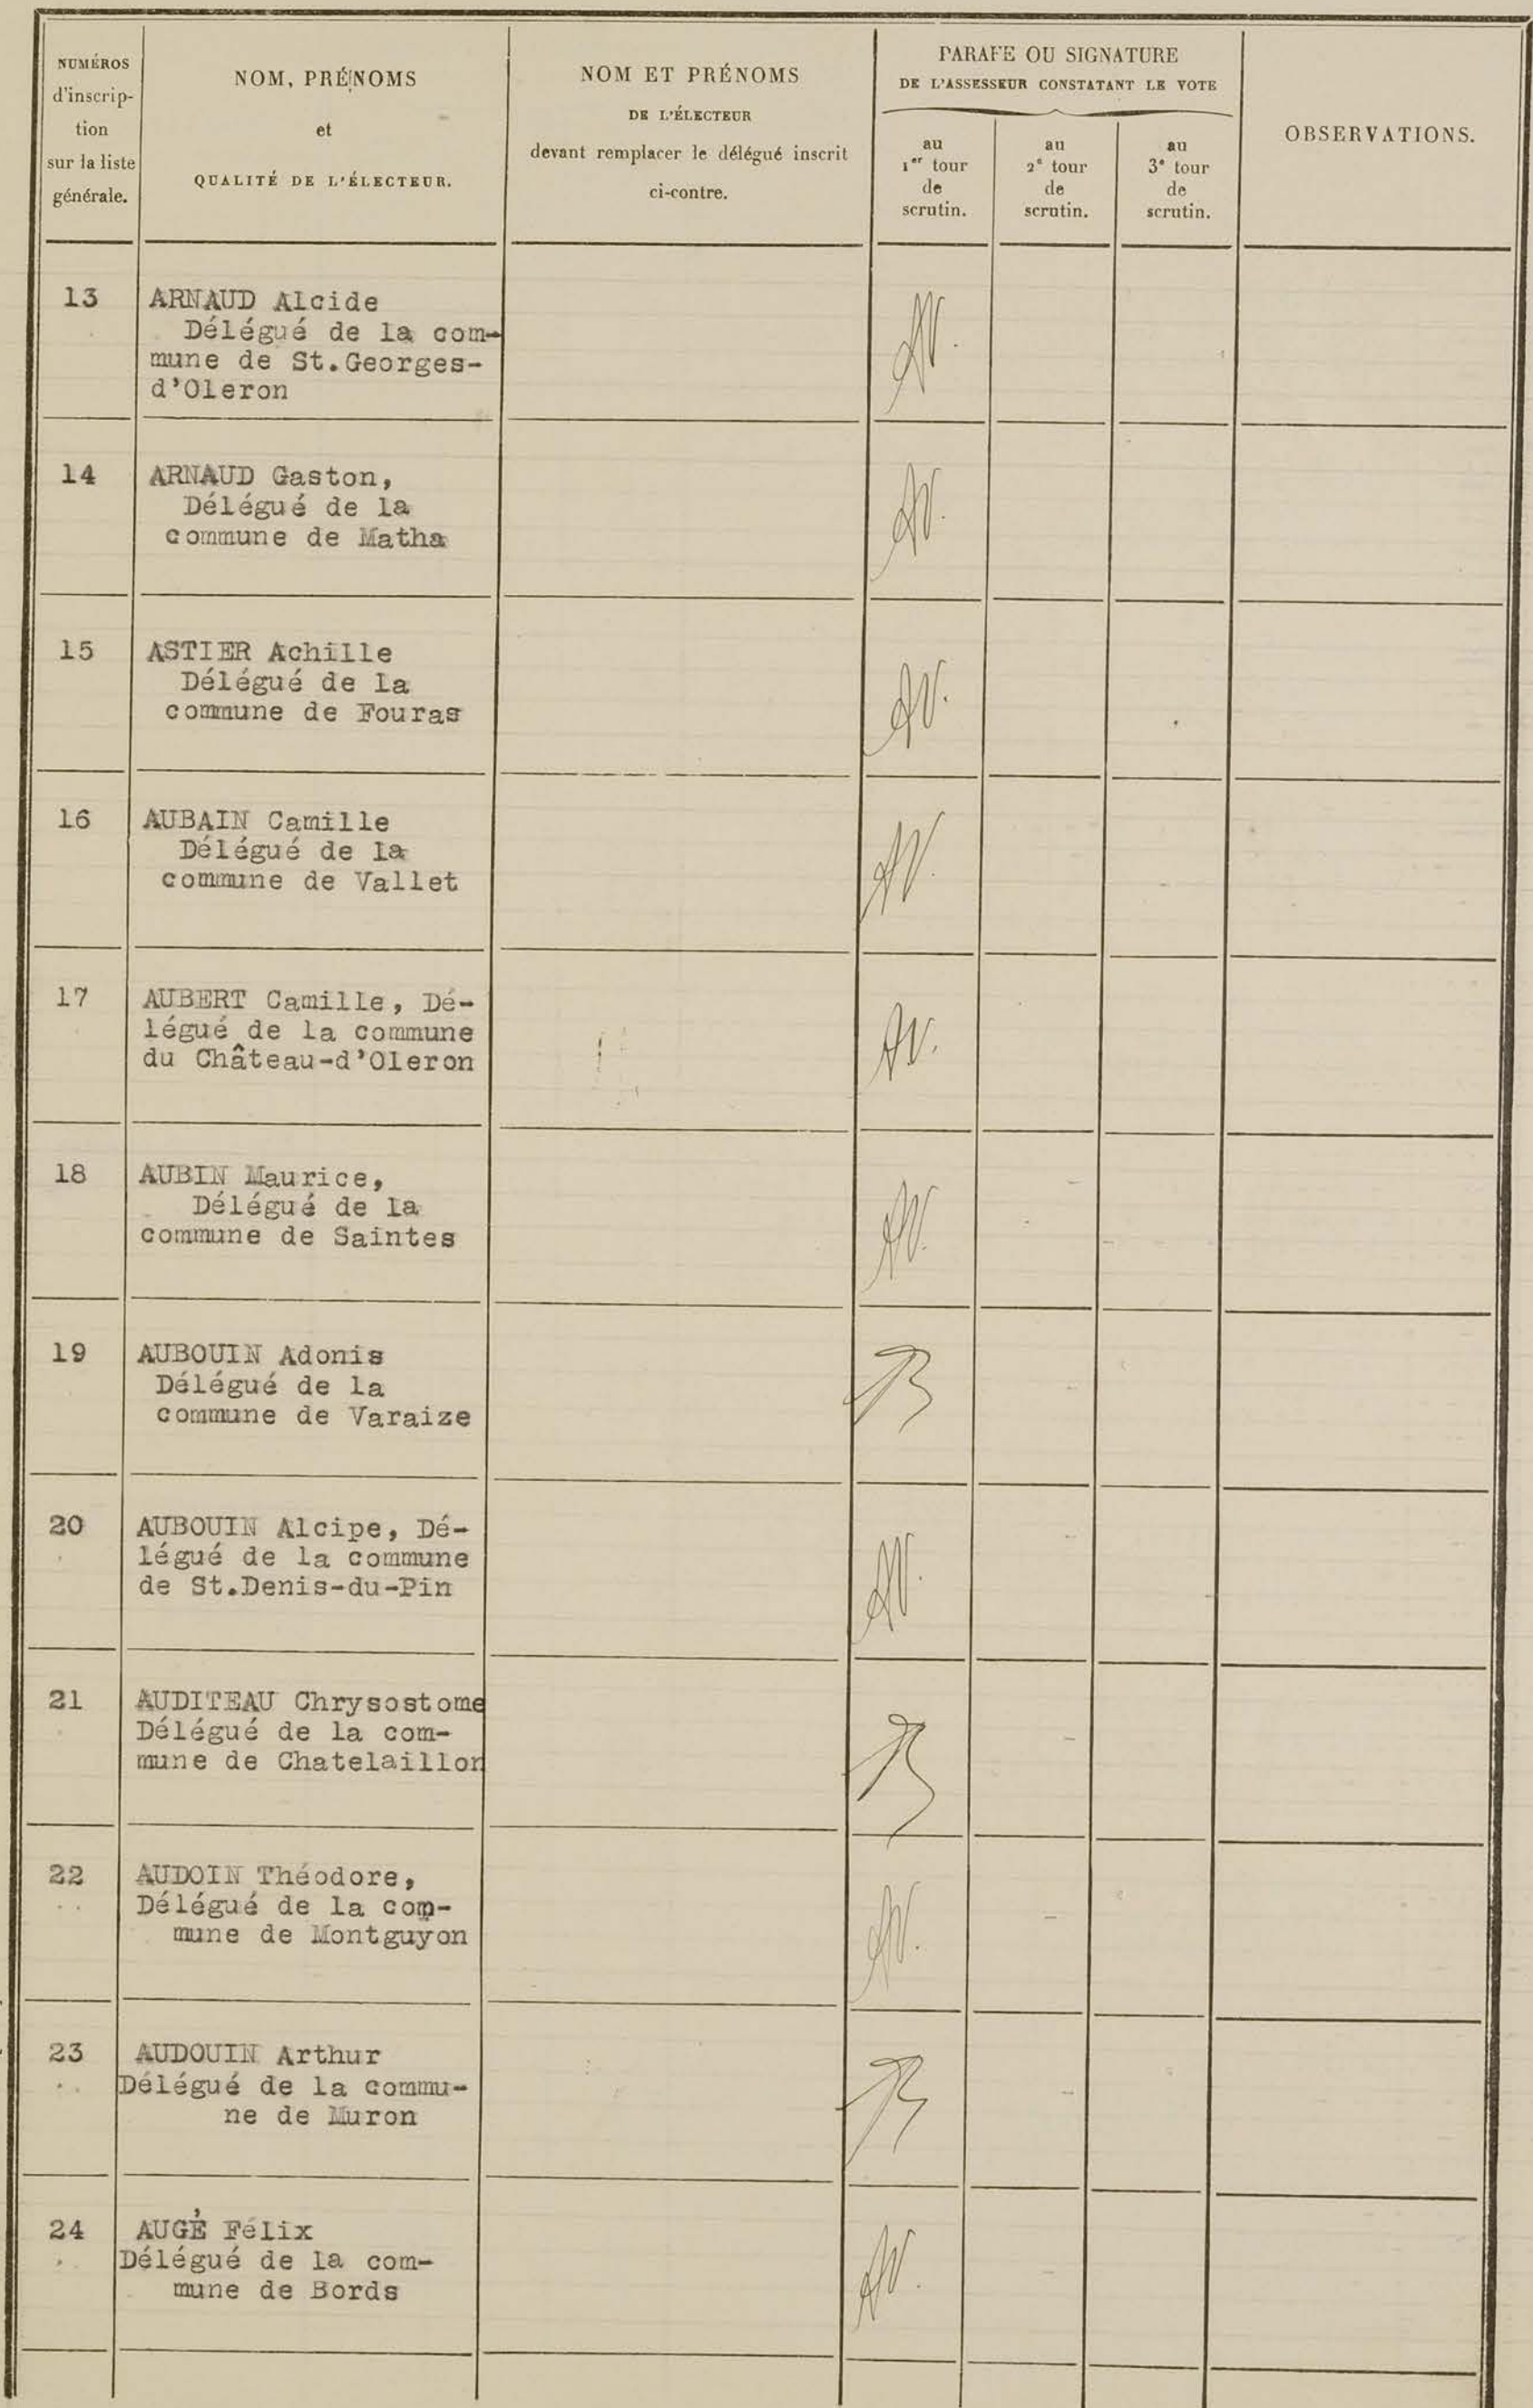 NUMÉROS
d'inscrip-
tion
sur la liste
générale.
NOM, PRÉNOMS
et
QUALITÉ DE L'ÉLECTEUR.
NOM ET PRÉNOMS
DE L'ÉLECTEUR
devant remplacer le délégué inscrit
ci-contre.
PARAFE OU SIGNATURE
DE L'ASSESSEUR CONSTATANT LE VOTE
au
1er tour
de
scrutin.
au
2e tour
de
scrutin.
au
3e tour
de
scrutin.
OBSERVATIONS.
13
ARNAUD Alcide
Délégué de la com-
mune de St.Georges-
d'Oleron
14
ARNAUD Gaston,
Délégué de la
commune de Matha
15
ASTIER Achille
Délégué de la
commune de Fouras
16
AUBAIN Camille
Délégué de la
commune de Vallet
17
AUBERT Camille, Dé-
légué de la commune
du Château-d'Oleron
18
AUBIN Maurice,
Délégué de la
commune de Saintes
19
AUBOUIN Adonis
Délégué de la
commune de Varaize
20
AUBOUIN Alcipe, Dé-
légué de la commune
de St.Denis-du-Pin
21
AUDITEAU Chrysostome
Délégué de la com-
mune de Chatelaillon
22
AUDOIN Théodore,
Délégué de la com-
mune de Montguyon
23
AUDOUIN Arthur
Délégué de la commu-
ne de Muron
24
AUGÉ Félix
Délégué de la com-
mune de Bords